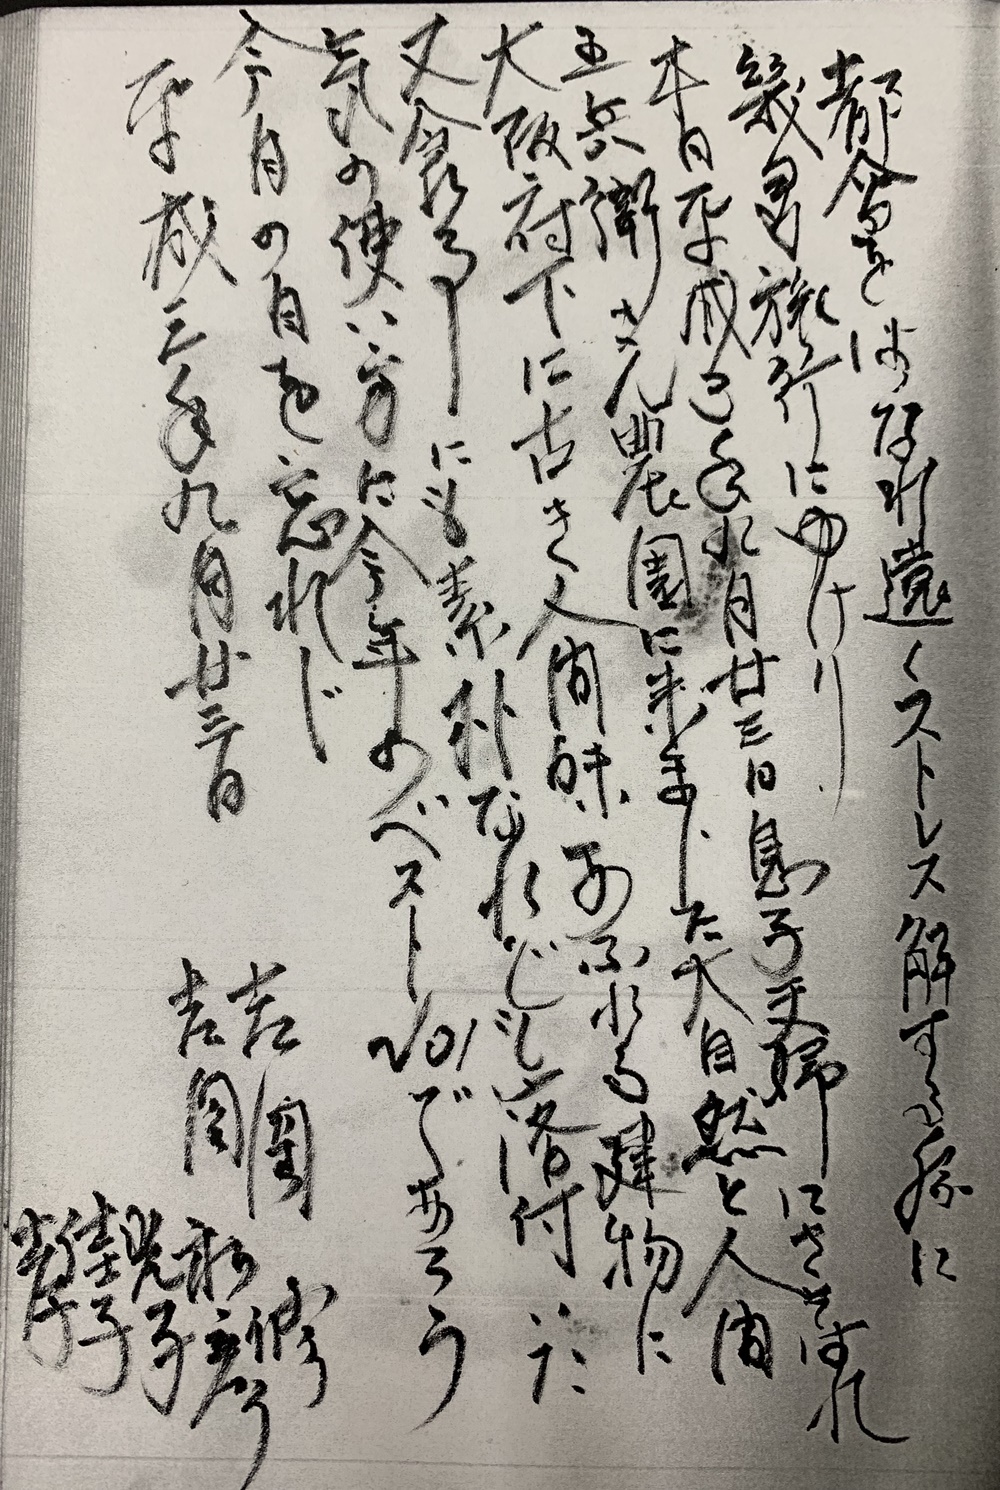 都会をはなれ遠くストレス解する為に
幾男旅行にゆけり 息子夫婦にさそはれ
本日平成三年九月廿三日 大自然と人間
五兵衛さん農園に来ました
大阪府下に古き人間味あふれる建物に
又食事にも素朴なれども落付いた
気の使い方に今年のベスト101であろう
今日の日を忘れじ
平成三年九月廿三日
吉岡
吉岡